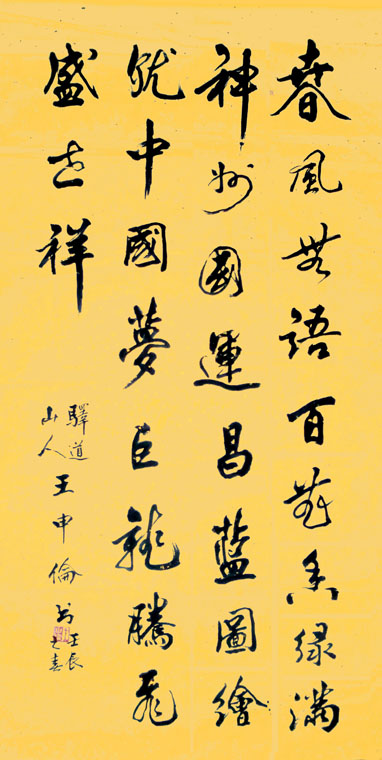 春風無語百花香緑滿
神州國運昌藍圖繪
就中國夢巨龍騰飛
盛世祥
驛道山人王申倫书壬辰之春